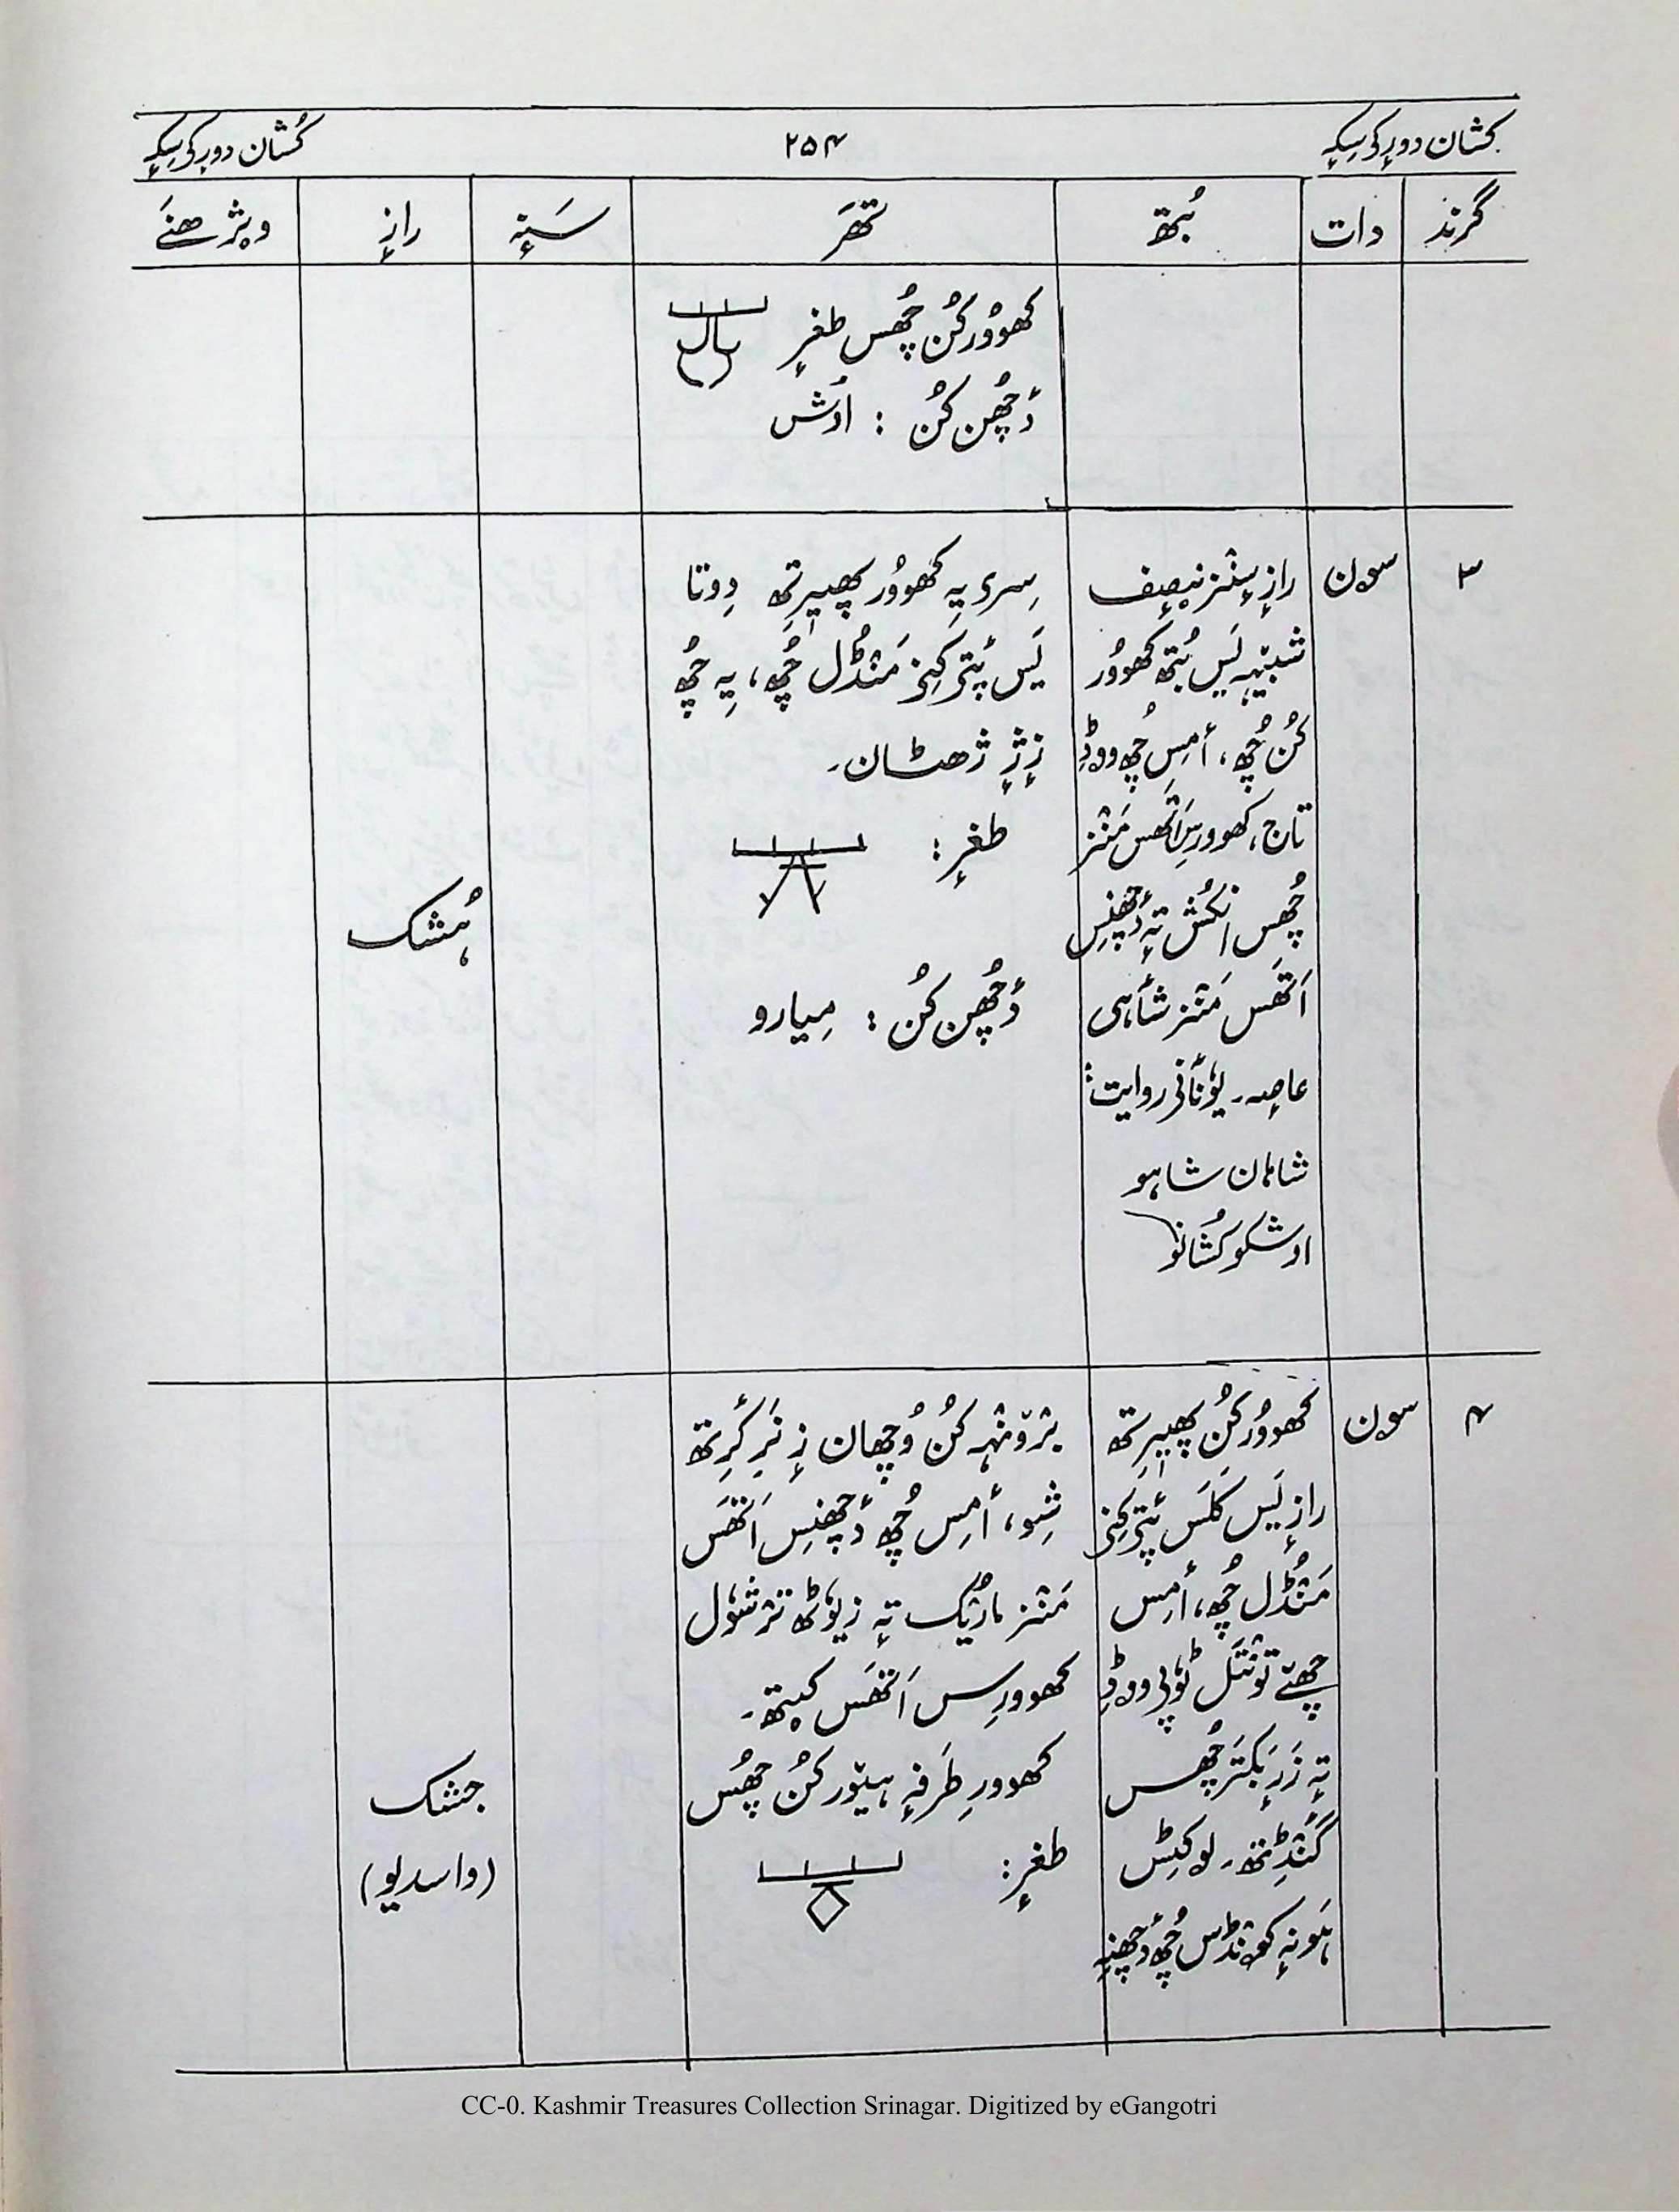 کُشان دورِکۍ سِکہٕ
۲۵۴
کُشان دورِکۍ سِکہٕ
گرنز دات بُتھ تھَر سَنہٕ رازٕ ویژھنَے
کھوٚوُر کُن چُھس طغرٕ
دٔچھُن کُن : اوٗش
۳ سون
رازٕ سٕنز نِصٕف
شبیٖہہ یَس بُتھ کھوٚوُر
کُن چُھ، أمِس چُھ ووڈِ
تاج، کھوورِس اَتھس مَنٛز
چُھس انکُش تہٕ دٔچھنِس
اَتھَس مَنٛز شأہی
عاصہ۔ یوٗنأنی روایت:
شاہان شاہو
اوشکو کُشانو
سِری یہِ کھوٚوُر پھیٖرِتھ دِوتا
یَس پٔتۍ کِنۍ مَنٛڈُل چُھ، یہِ چُھ
زٕژٕ ژھٹان۔
طغرٕ:
دٔچھُن کُن : مِیارو
ہُشک
۴ سون
کھوٚوُر کُن پھیٖرِتھ
رازٕ یَس کَلَس پٔتۍ کِنۍ
مَنٛڈُل چُھ، أمِس
چھےٚ تونٛتَل ٹوٗپۍ ووڈِ
تہٕ زَرٕ بکتَر چُھس
گَنٛڈِتھ۔ لوکِٹِس
ہَونہٕ کونٛڈَس چُھ دٔچھنہِ
برٛونٛہہ کُن وُچھان زٕ نَرِ کٔرِتھ
شِو، أمِس چُھ دٔچھنِس اَتھَس
مَنٛز مارُیُک تہٕ زیوٗٹھ ترٛشوٗل
کھوورِس اَتھَس کیٚتھ۔
کھوورِ طَرفہٕ ہیوٚر کُن چُھس
طغرٕ:
جشک
(واسدیو)
CC-0. Kashmir Treasures Collection Srinagar. Digitized by eGangotri